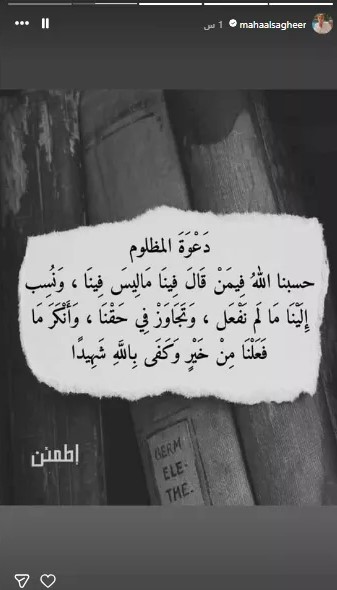 mahaalsagheer 1 س
دَعْوَةَ المظلوم
حسبنا اللهُ فِيمَنْ قَالَ فِينَا مَالِيسَ فِينَا ، وَنُسِب
إِلَيْنَا مَا لَم نَفْعَل ، وَتَجَاوَزْ فِي حَقْنَا ، وَأَنْكَرَ مَا
فَعَلْنَا مِنْ خَيْرٍ وَكَفَى بِاللَّهِ شَهِيدًا
إطمئن
GERM
ELE-
THE-